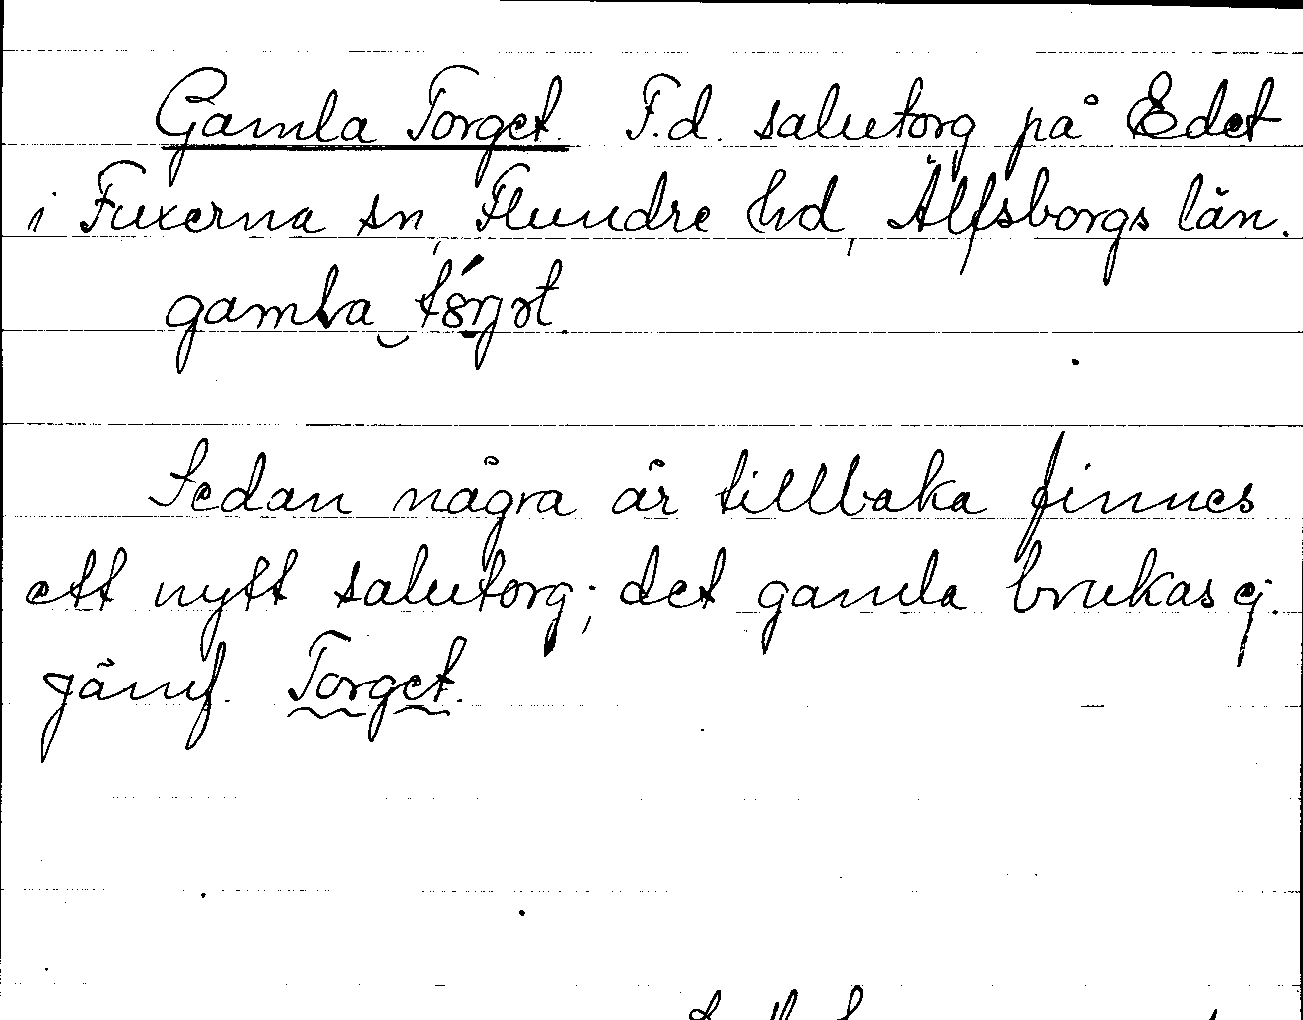 Gamla Torget. F.d. salutorg på Edet
i Fuxerna sn, Flundre hd, Älfsborgs län.
gamla
Sedan några år tillbaka finnes
ett nytt salutorg; det gamla brukas ej.
Jämf. Torget.